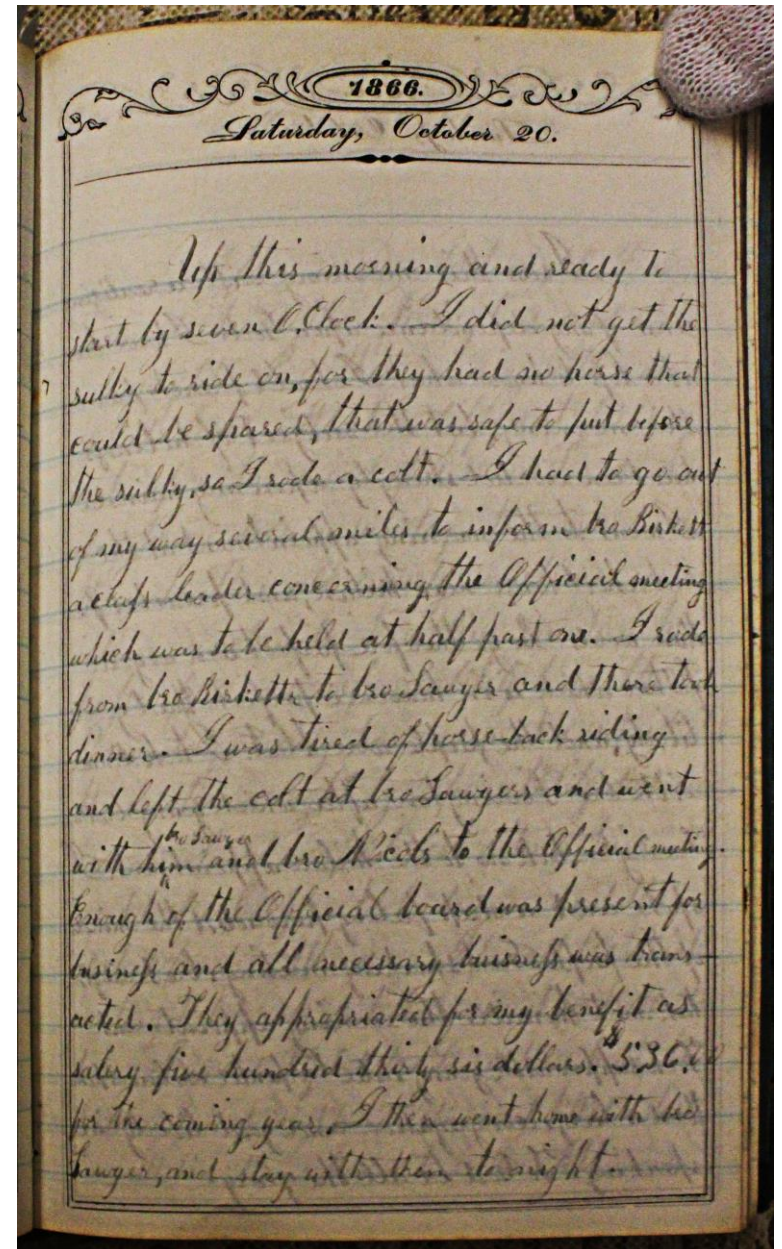 1866.
Saturday, October 20.
Up this morning and ready to
start by seven O,Clock. I did not get the
sulky to ride on, for they had no horse that
could be spared, that was safe to put before
the sulky, so I rode a colt. I had to go out
of my way several miles to inform bro Birkett
a class leader concerning the Official meeting
which was to be held at half past one. I rode
from bro Birketts to bro Sawyer and there took
dinner. I was tired of horse-back riding
and left the colt at bro Sawyers and went
bro Sawyer
with him and bro to the Official meeting.
Enough of the Official board was present for
business and all necessary buisness was trans-
acted. They appropriated for my benefit as
salery five hundred thirty six dollars. $536.00
for the coming year, I then went home with bro
Sawyer, and stay with them to night.